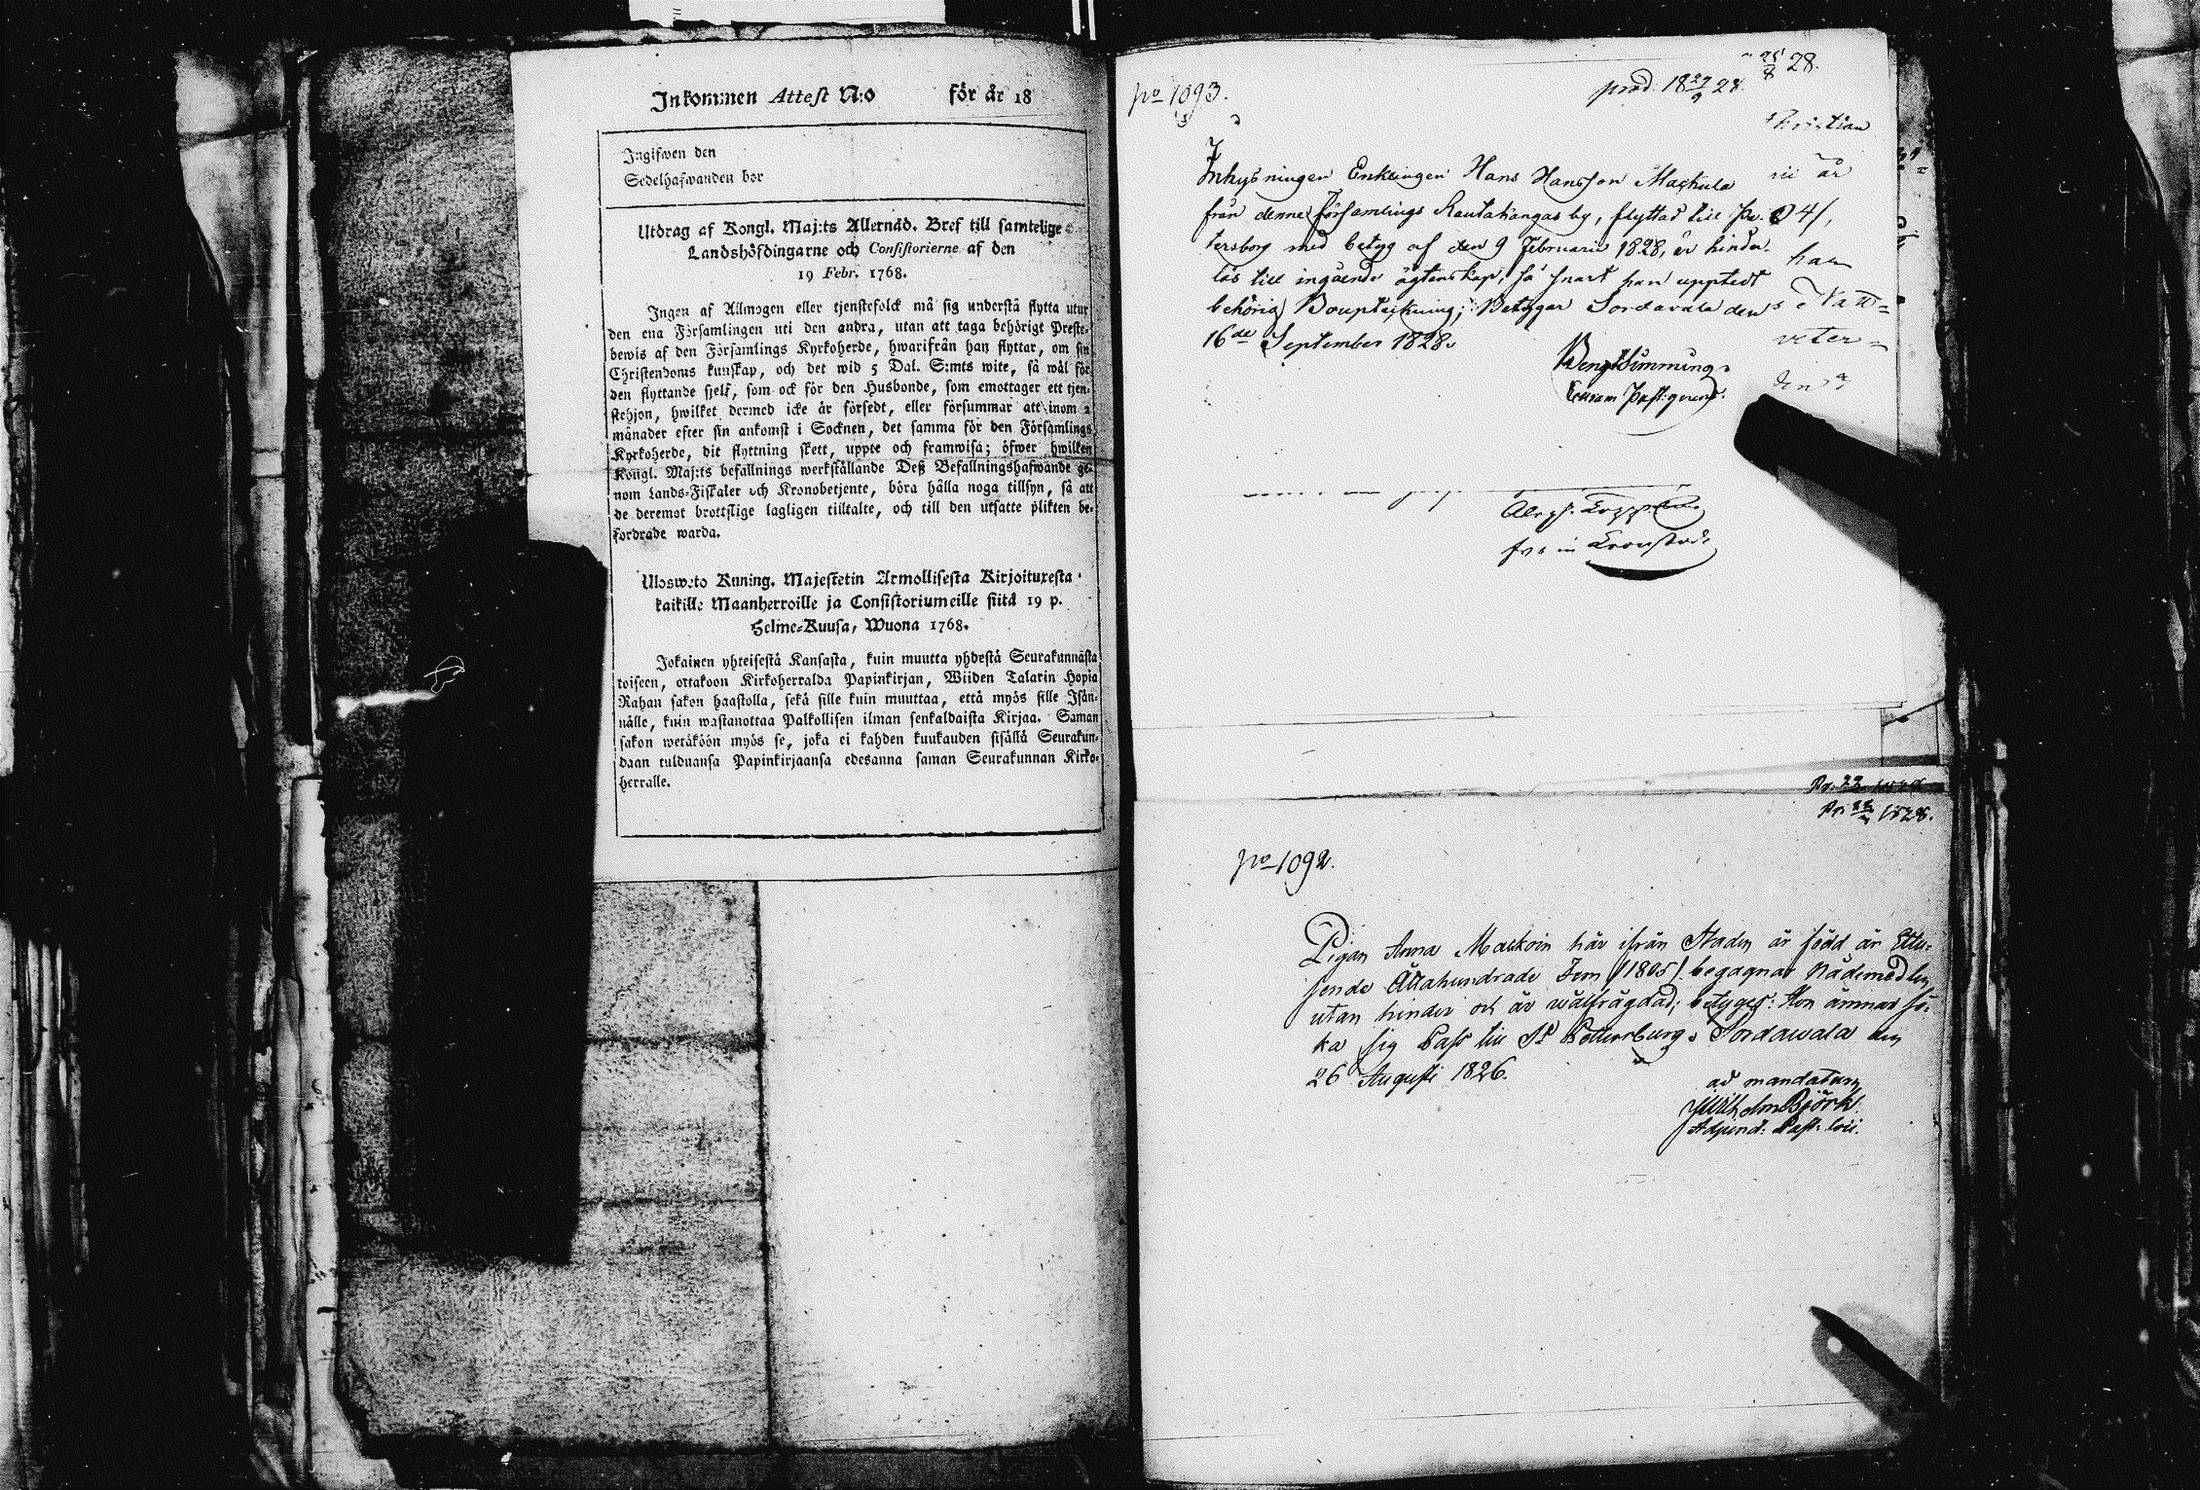 Inkommen Attest N:o för år 18
Ingifwen den
Sedelhafwanden bor
Utdrag af Kongl. Maj:ts Allernåd. Bref till samtelige
Landshöfdingarne och Consistorierne af den
19 Febr. 1768.
Ingen af Allmogen eller tjenstefolck må sig understå flytta utur
den ena Församlingen uti den andra, utan att taga behörigt Preste-
bewis af den Församlings Kyrkoherde, hwarifrån han flyttar, om sin
Christendoms kunskap, och det wid 5 Dal. S:mts wite, så wål för
den flyttande sjelf, som ock för den Husbonde, som emottager ett tjen-
stehjon, hwilket dermed icke är försedt, eller försummar att inom 2
månader efter sin ankomst i Socknen, det samma för den Församlings
Kyrkoherde, dit flyttning skett, uppte och framwisa; öfwer hwilken
Kongl. Maj:ts befallnings werkställande Deß Befallningshafwande ge-
nom Lands-Fiskaler och Kronobetjente, böra hålla noga tillsyn, så att
de deremot brottslige lagligen tilltalte, och till den utsatte plikten be-
fordrade warda.
Ulosweto Kuning. Majestetin Armollisesta Kirjoituxesta
kaikille Maanherroille ja Consistoriumeille siitä 19 p.
Helme-Kuusa, Wuona 1768.
Jokainen yhteisestä Kansasta, kuin muutta yhdestä Seurakunnasta
toiseen, ottakoon Kirkoherralda Papinkirjan, Wiiden Talarin Hopia
Rahan sakon haastolla, sekä sille kuin muuttaa, että myös sille Isän-
nälle, kuin wastanottaa Palkollisen ilman senkaldaista Kirjaa. Saman
sakon wetäköön myös se, joka ei kahden kuukauden sisällä Seurakun-
daan tulduansa Papinkirjaansa edesanna saman Seurakunnan Kirko-
herralle.
28.
No 1093.
prod. 18 29/9 28.
Christian
Inhysningen Enklingen Hans Hansson Mackula
från denne Församlings Rautakangas by, flyttad till Pe-
tersborg med betyg af den 9 Februarii 1828, är hinder-
lös till ingående ägtenskap, så snart han uppted
behörig Bouptekning; Betygar Sordavala den
16de September 1828.
år
04/,
han
Natt-
veter-
den
Bengt Simming
in Cronstadt
1828.
No 1092.
Pigan Anna Mackoin här ifrån Staden är född år Ettu-
sende Åttahundrade Fem /1805/ begagnar Nådemedlen
utan hinder och är wälfrägdad; betyges: Hon ämnar sö-
ka sig Pass till St Petersburg. Sordawala den
26 Augusti 1826.
ad mandatum
Wilhelm Björk.
Adjunct: Past: loci.